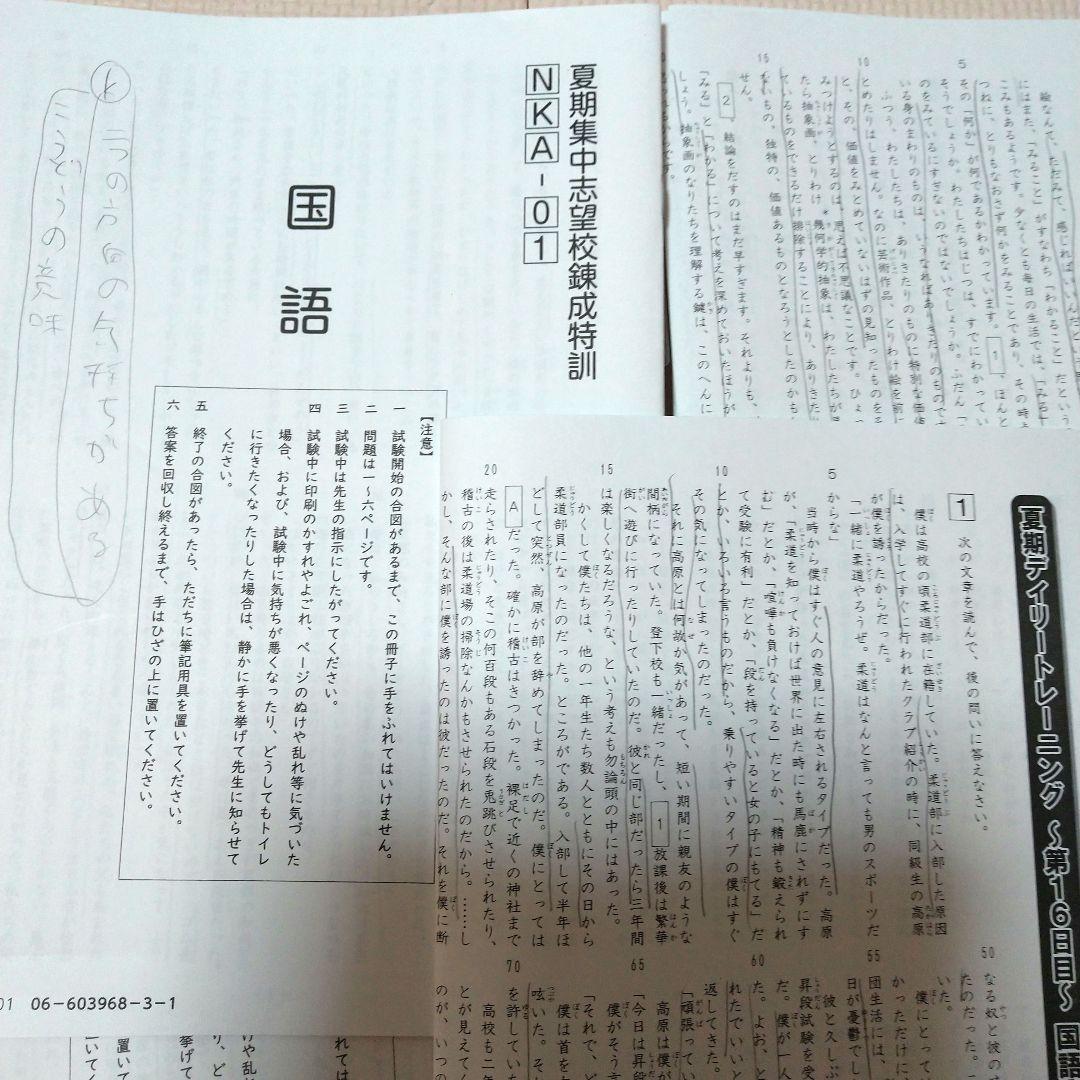 夏期集中志望校錬成特訓
NKA-01
国語
【注意】
一 試験開始の合図があるまで、この冊子に手をふれてはいけません。
二 問題は一～六ページです。
三 試験中は先生の指示にしたがってください。
四 試験中に印刷のかすれやよごれ、ページのぬけや乱れ等に気づいた
場合、および、試験中に気持ちが悪くなったり、どうしてもトイレ
に行きたくなったりした場合は、静かに手を挙げて先生に知らせて
ください。
五 終了の合図があったら、ただちに筆記用具を置いてください。
六 答案を回収し終えるまで、手はひざの上に置いてください。
と 二つの方向の気持ちがある
こうぞうの意味
01 06-603968-3-1
絵なんて、ただみて、感じればいいんだという
にはまた、「みること」がすなわち「わかること」だという
こみもあるようです。少なくとも毎日の生活では、「みる」
つねに、とりもなおさず何かをみることであり、その時
5
その「何か」が何であるかわかっています。1、ほんと
そうでしょうか。わたしたちはじつは、すでにわかってい
のをみているにすぎないのではないでしょうか。ふだん「
いる身のまわりのものは、いうなればありきたりのもので
ふつう、わたしたちは、ありきたりのものに特別な価値
10
とめたりはしません。なのに芸術作品、とりわけ絵を前に
と、その、価値をみとめていないはずの見知ったものを
みつけようとするのは、思えば不思議なことです。ひょ
たら抽象画、とりわけ*幾何学的抽象は、わたしたちが見
ているものをできるだけ排除することにより、ありきた
15
ないもの、独特の、価値あるものとなろうとしたのかも
せん。
2、結論をだすのはまだ早すぎます。それよりも、
「みる」と「わかる」について考えを深めておいたほうが
しょう。抽象画のなりたちを理解する鍵は、このへんに
夏期デイリートレーニング ～第16日目～ 国語
1 次の文章を読んで、後の問いに答えなさい。
僕は高校の頃柔道部に在籍していた。柔道部に入部した原因
は、入学してすぐに行われたクラブ紹介の時に、同級生の高原
が僕を誘ったからだった。
「一緒に柔道やろうぜ。柔道はなんと言っても男のスポーツだ
5
からな」
当時から僕はすぐ人の意見に左右されるタイプだった。高原
が、「柔道を知っておけば世界に出た時にも馬鹿にされずにす
む」だとか、「喧嘩も負けなくなる」だとか、「精神も鍛えられ
て受験に有利」だとか、「段を持っていると女の子にもてる」だ
10
とか、いろいろ言うものだから、乗りやすいタイプの僕はすぐ
その気になってしまったのだった。
それに高原とは何故か気があって、短い期間に親友のような
間柄になっていた。登下校も一緒だったし、1放課後は繁華
街へ遊びに行ったりしていたのだ。彼と同じ部だったら三年間
15
は楽しくなるだろうな、という考えも勿論頭の中にはあった。
かくして僕たちは、他の一年生たち数人とともにその日から
柔道部員になったのだった。ところがである。入部して半年ほ
どして突然、高原が部を辞めてしまったのだ。僕にとっては
Aだった。確かに稽古はきつかった。裸足で近くの神社まで
20
走らされたり、そこの何百段もある石段を兎跳びさせられたり、
稽古の後は柔道場の掃除なんかもさせられたのだから。……し
かし、そんな部に僕を誘ったのは彼だったのだ。それを僕に断
50
なる奴と彼の
たのだった。
いた。
僕にとって
かっただけに
55
団生活には、
日が憂鬱でし
彼と久しぶ
昇段試験を受
だ。僕が一人
60
た。よお、と
れたでいいと
返してきた。
「頑張ってい
高原は僕が
65
「今日は昇段
僕がそう言
「それで、ど
僕は首を
呟いた。そ
70
を許してい
高校も二年
とが見えて
のが、いつ